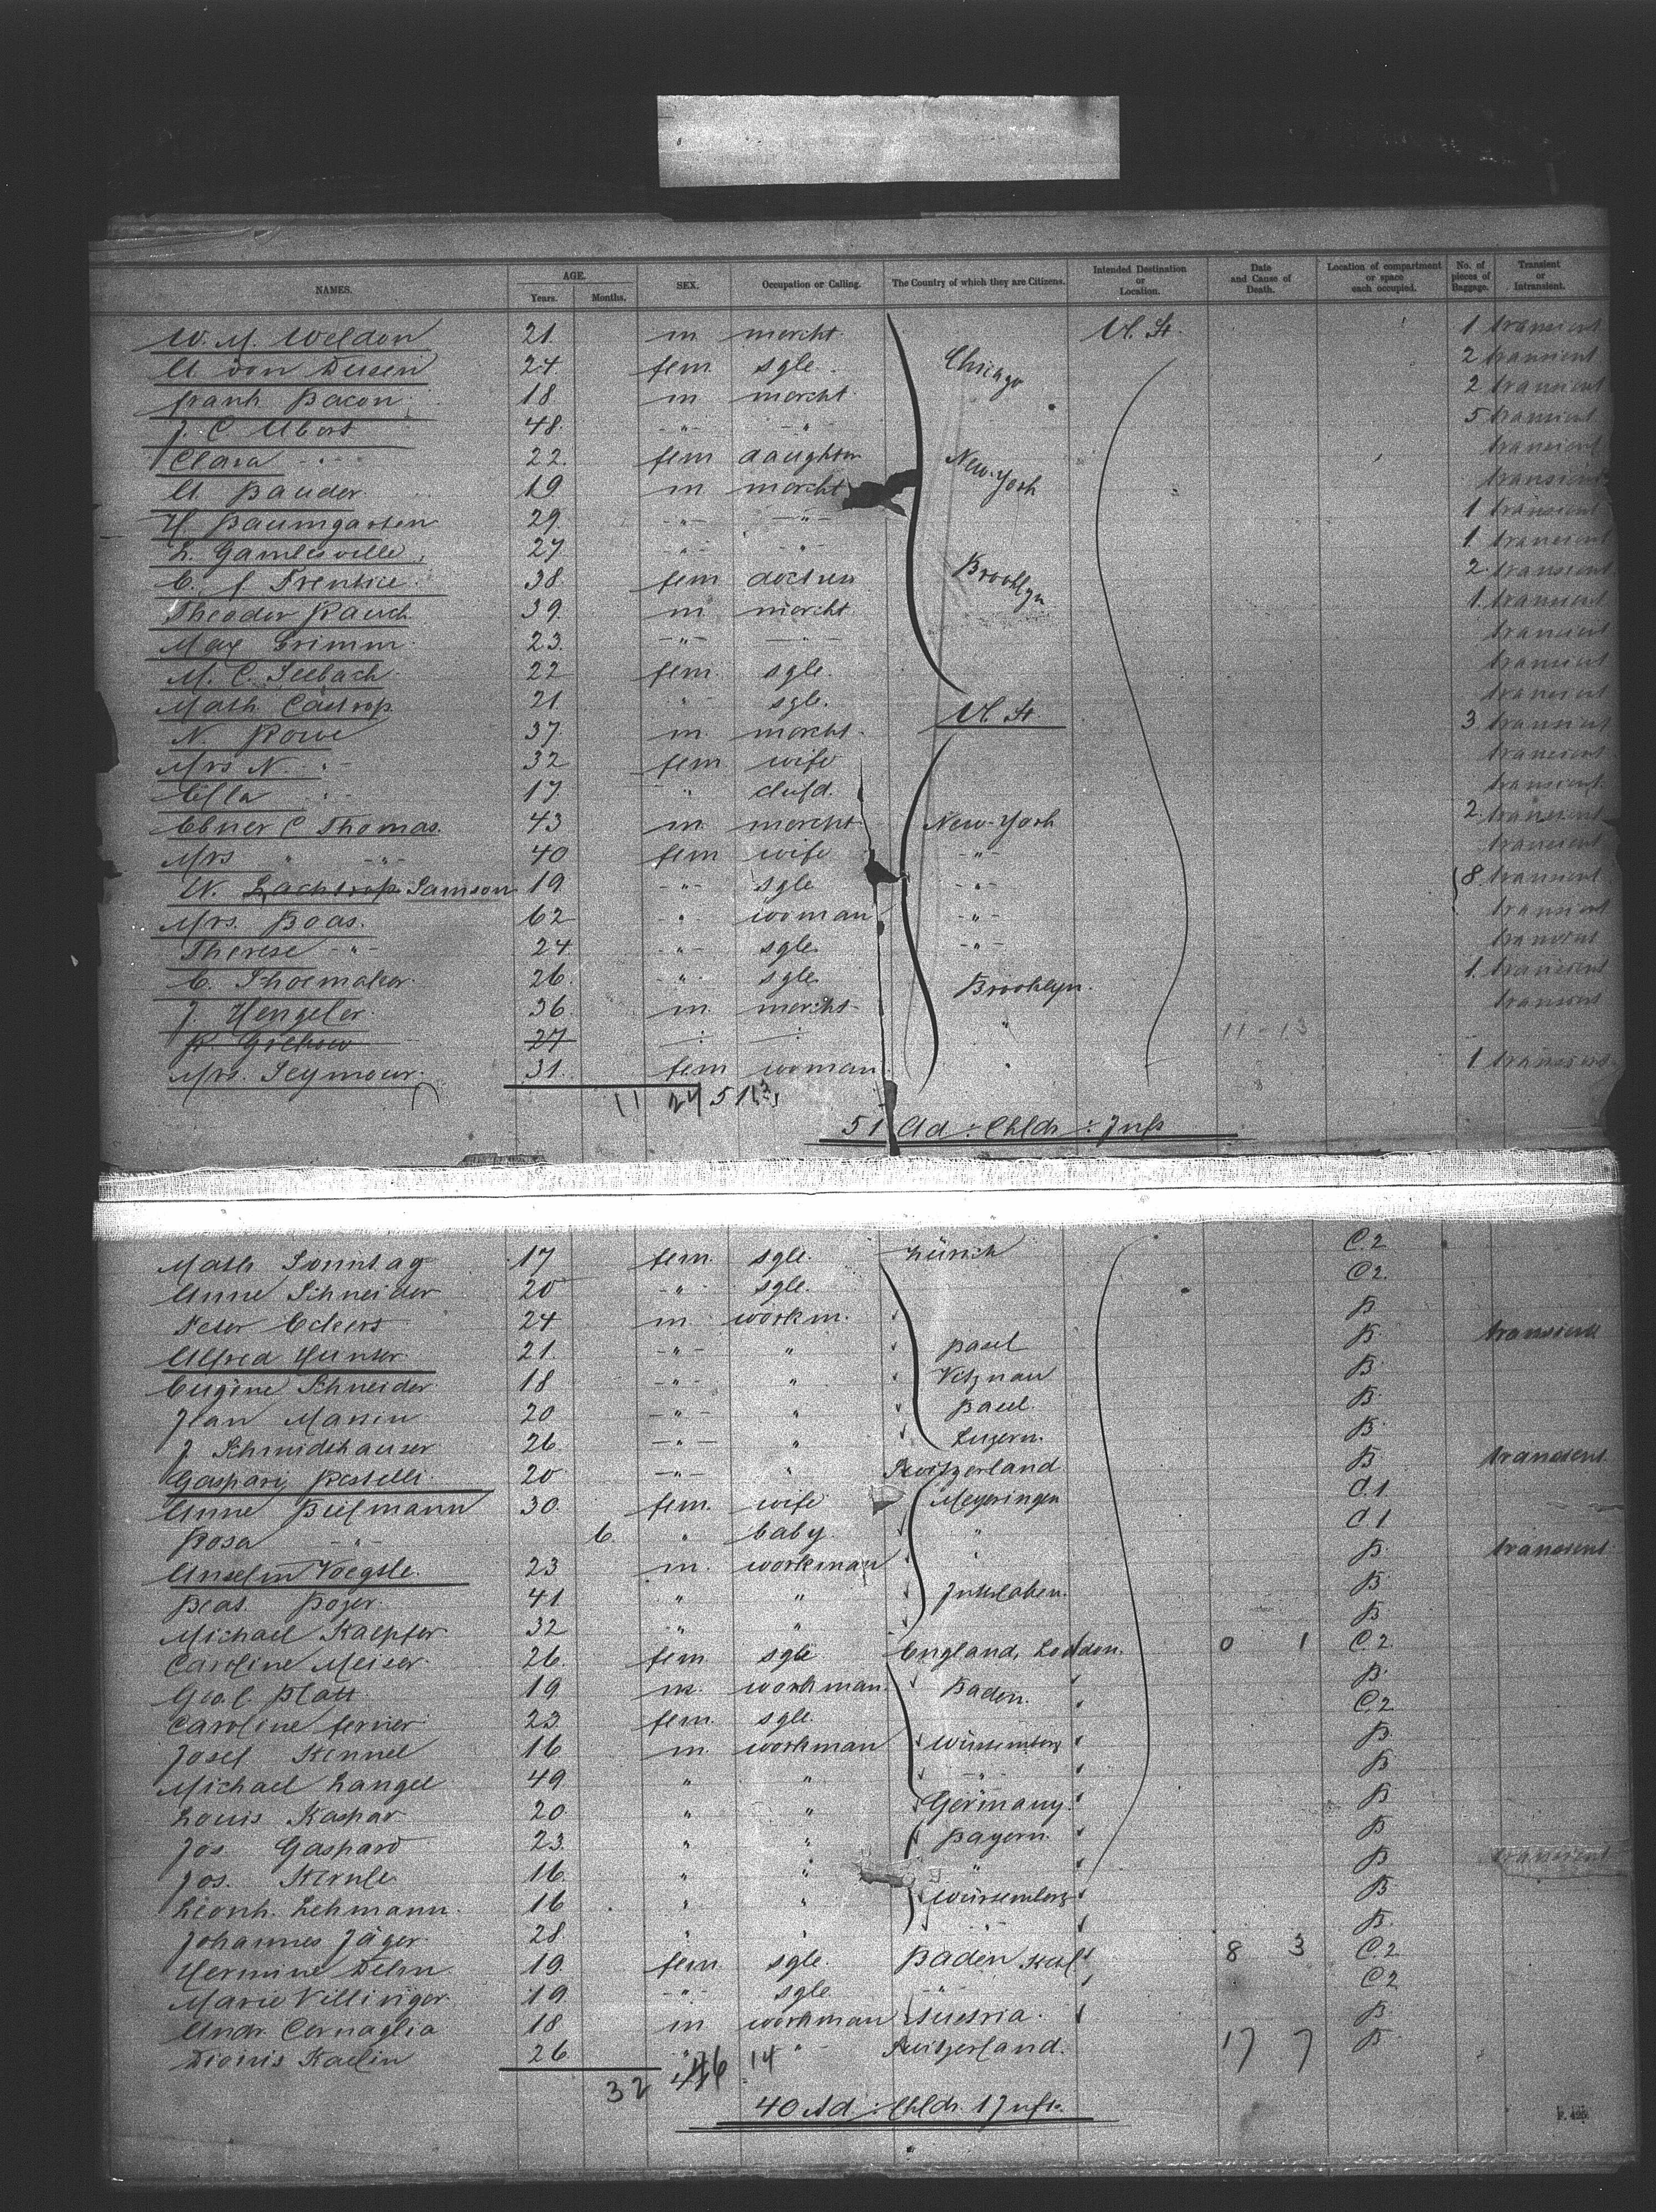 NAMES. AGE. Years. Months. SEX. Occupation or Calling. The Country of which they are Citizens. Intended Destination or Location. Date and Cause of Death. Location of compartment or space each occupied. No. of pieces of Baggage. Transient or Intransient.
W. M. Weldon 21. m mercht. U. St. 1 transient
von Dusen 24 fem sgle. Chicago 2 transient
Frank Bacon 18 m mercht. 2 transient
J. C. 48. -"- -"- 5 transient
Clara -"- 22. fem daughter New-York transient
Bauder 19. m mercht transient
H. Baumgarten 29. -"- -"- 1 transient
L. 27 -"- -"- 1 transient
38. fem Brooklyn 2 transient
Theodor Rauch 39. m mercht 1. transient
Max Grimm 23. -"- -"- transient
M. C. Seebach 22 fem. sgle. transient
Math. Castrop 21. " sgle. transient
N. Rowe 37. m. mercht. U. St. 3 transient
Mrs N. -"- 32 fem wife transient
Ella -"- 17 " transient.
Ebner C Thomas. 43 m. mercht New-York 2 transient
Mrs " -"- 40 fem wife -"- transient
Samson 19. -"- sgle -"- 8 transient
Mrs. Boas. 62 " woman -"- transient
Therese -"- 24. -"- sgle. -"- transient
C. Shoemaker. 26. " sgle Brooklyn. 1. transient
J. Hengeler. 36. m. mercht. " transient
27 11-13
Mrs. Seymour. 31. fem woman " 1 transient
11 24
51 Ad : Chldr : Infts
Math Sonntag 17 fem. sgle. Zürich C.2
Anne Schneider 20 -"- sgle. C2.
Peter Eckert 24 m workm. B
Alfred Hunter 21. -"- " Basel B transient
Eugène Schneider 18 -"- " Vitznau B
Jean Massin 20 -"- " Basel. B
J. Schmidhauser 26 -"- " Luzern. B
Gaspari Restelli 20 -"- " Switzerland B transient
Anne Bielmann 30. fem. wife Meyringen C.1
Rosa -"- 6. " baby. " C 1
Anselm Voegtle. 23 m. workman " B. transient
Beat. Bozer. 41. " " B
Michael Kaepfer 32 " " B
Caroline Meiser 26. fem sgle England, London. 0 1 C.2
Platt 19 m. workman. Baden. B
Caroline ferner 23. fem. sgle. C.2
Josef Kennel 16 m. workman Würtemberg B
Michael Langel 49 " " -"- B
Louis Kaspar 20. " " Germany. B
Jos. Gaspard 23. " " Bayern. B
Jos. 16. " " " B transient
Leonh. Lehmann. 16 " " Würtemberg B
Johannes Jäger 28. " " " B.
Hermine Dehn 19. fem sgle. Baden 8 3 C2
Marie Villinger 19 -"- sgle -"- C2
Andr. Cernaglia 18 m workman Austria. B
Dionis Kaelin 26 " -"- Switzerland. 17 7 B
32 46 14
40 Ad : Chldr. 1 Infts.